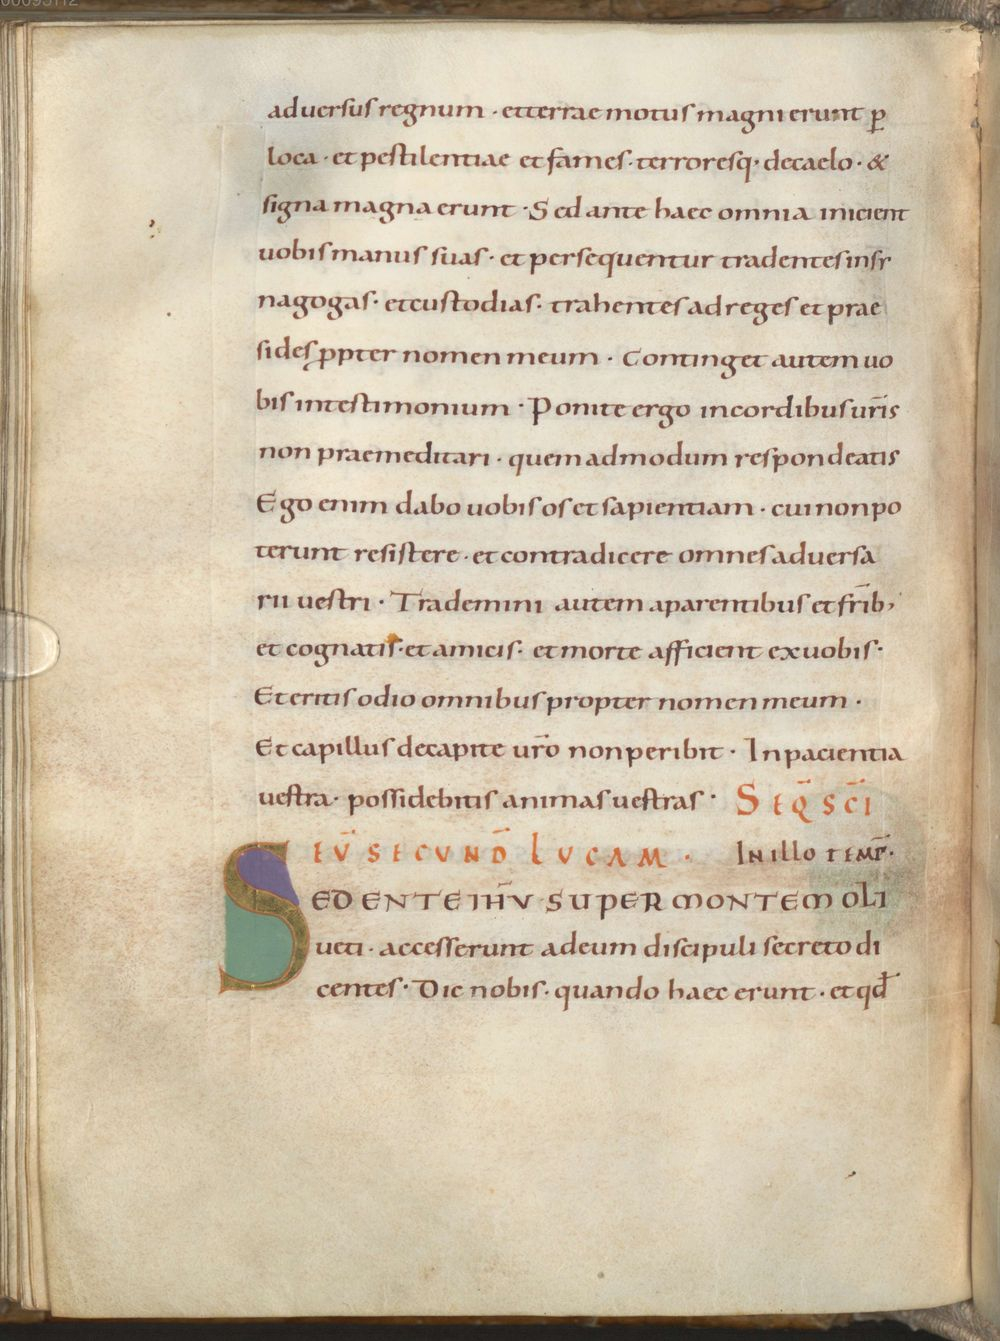 aduersus regnum · et terrae motus magni erunt ꝑ
loca · et pestilentiae et fames · terroresq· decaelo · &
signa magna erunt · Sed ante haec omnia inicient
uobis manus suas · et persequentur tradentes insy
nagogas · et custodias · trahentes ad reges et prae
sides ꝓpter nomen meum · Continget autem uo
bis intestimonium · Ponite ergo incordibus ur̄is
non praemeditari · quemadmodum respondeatis
Ego enim dabo uobis os et sapientiam · cui non po
terunt resistere · et contradicere omnes aduersa
rii uestri · Trademini autem aparentibus et fr̄ib,
et cognatis · et amicis · et morte afficient exuobis ·
Et eritis odio omnibus propter nomen meum ·
Et capillus decapite ur̄o non peribit · Inpacientia
uestra · possidebitis animas uestras · SEQ̄ SC̄I
EŪ SECUND̄ LUCAM · IN illo TEMP̄·
SEDENTE IHV̄ SUPER MONTEM OLI
ueti · accesserunt adeum discipuli secreto di
centes · Dic nobis · quando haec erunt · et qd̄